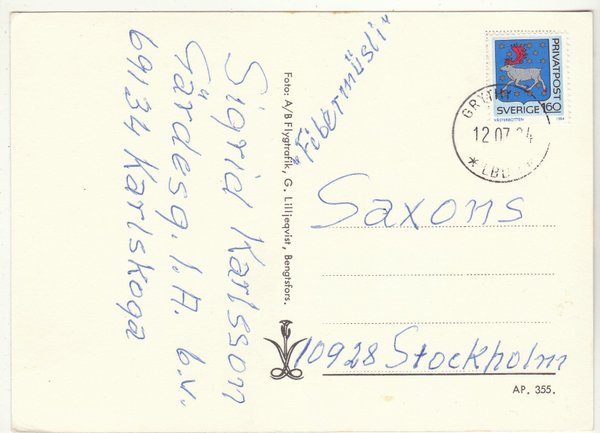 Sigrid Karlsson
Gärdesg. 1A. b.v.
69134 Karlskoga
Foto: A/B Flygtrafik, G. Lilljeqvist, Bengtsfors.
"Fibermüsli"
PRIVATPOST
SVERIGE 160
VÄSTERBOTTEN 1984
12 07 84
Saxons
10928 Stockholm
AP. 355.